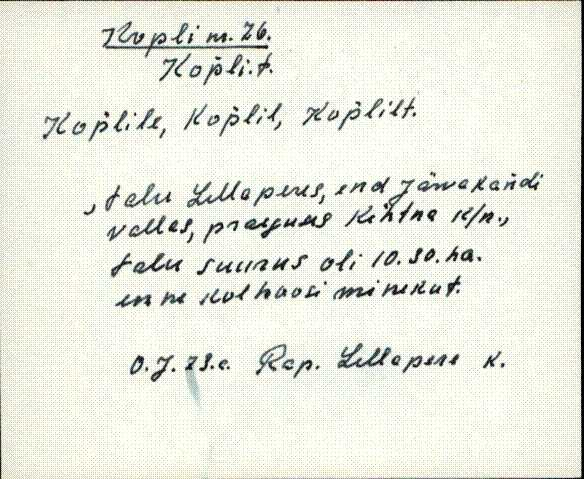 Kopli m. 26.
Kop̀li.t.
Kop̀lile, Kop̀lil, Kop̀lilt.
, talu Lellaperes, end Järvakan̄di
vallas, praegune Kehtna k/n.,
talu suurus oli 10.30.ha.
enne kolhoosi minekut.
O.J. 29.a. Rap. Lellapere k.